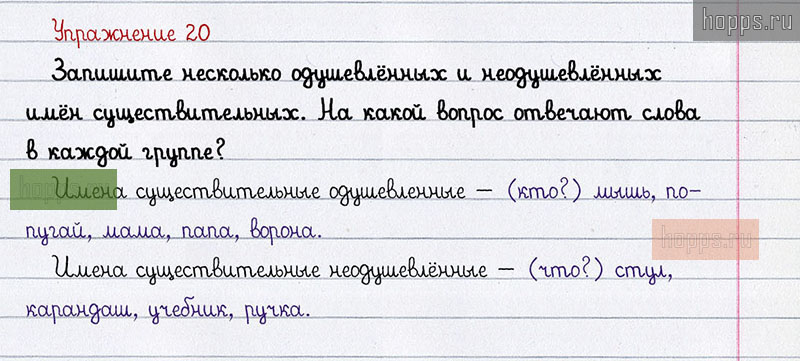 hopps.ru
Упражнение 20
Запишите несколько одушевлённых и неодушевлённых
имён существительных. На какой вопрос отвечают слова
в каждой группе?
Имена существительные одушевленные – (кто?) мышь, по-
пугай, мама, папа, ворона.
hopps.ru
Имена существительные неодушевлённые – (что?) стул,
карандаш, учебник, ручка.